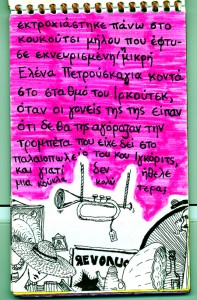 εκτροχιάστηκε πάνω στο
κουκούτσι μήλου που έφτυ-
σε εκνευρισμένη η μικρή
Ελένα Πετρούσκαγια κοντά
στο σταθμό του Ιρκούτσκ,
όταν οι γονείς της της είπαν
ότι δε θα της αγόραζαν την
τρομπέτα που είχε δει στο
παλαιοπωλείο του κου Ιγκόριτς,
και γιατί δεν ήθελε
μια κούκλα
REVOLUC